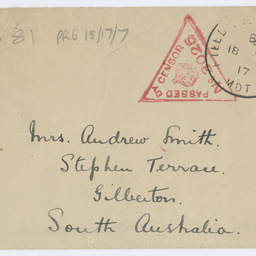 81 PRG 18/17/7
PASSED BY CENSOR
No 3025
FIELD
18
17
Mrs. Andrew Smith.
Stephen Terrace.
Gilberton.
South Australia.